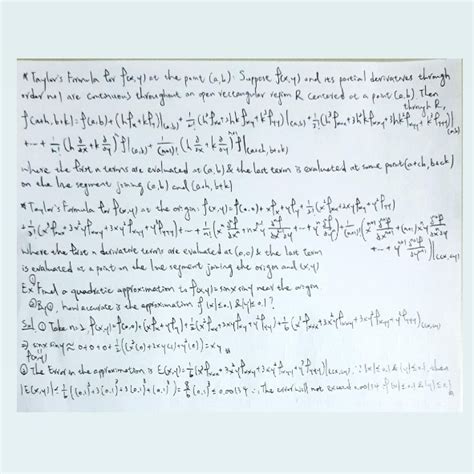 * Taylor's Formula for f(x,y) at the point (a,b). Suppose f(x,y) and its partial derivatives through
order n+1 are continuous throughout an open rectangular region R centered at a point (a,b). Then
through R,
f(a+h,b+k)=f(a,b)+(hfx+kfy)|(a,b)+1/2!(h²fxx+2hkfxy+k²fyy)|(a,b)+1/3!(h³fxxx+3h²kfxxy+3hk²fxyy+k³fyyy)|(a,b)
+...+1/n!(h ∂/∂x+k ∂/∂y)ⁿf|(a,b)+1/(n+1)!(h ∂/∂x+k ∂/∂y)ⁿ⁺¹f|(a+ch,b+ck)
where the first n terms are evaluated at (a,b) & the last term is evaluated at some point (a+ch,b+ck)
on the line segment joining (a,b) and (a+h,b+k)
* Taylor's Formula for f(x,y) at the origin: f(x,y)=f(0,0)+xfx+yfy+1/2!(x²fxx+2xyfxy+y²fyy)
+1/3!(x³fxxx+3x²yfxxy+3xy²fxyy+y³fyyy)+...+1/n!
where the first n derivative terms are evaluated at (0,0) & the last term
is evaluated at a point on the line segment joining the origin and (x,y)
Ex ① Find a quadratic approximation to f(x,y)=sinx siny near the origin
② By ①, how accurate is the approximation if |x|≤0.1 & |y|≤0.1?
Sol ① Take n=2, f(x,y)=f(0,0)+(xfx+yfy)+1/2(x²fxx+2xyfxy+y²fyy)+1/6(x³fxxx+3x²yfxxy+3xy²fxyy+y³fyyy)|(cx,cy)
⇒ sinx siny≈0+0+0+1/2(x²(0)+2xy(1)+y²(0))=xy
f(x,y)
② The Error in the approximation is E(x,y)=1/6(x³fxxx+3x²yfxxy+3xy²fxyy+y³fyyy)|(cx,cy), ∵|x|≤0.1 & |y|≤0.1, then
|E(x,y)|≤1/6[(0.1)³+3(0.1)³+3(0.1)³+(0.1)³]=8/6(0.1)³≤0.00134. The error will not exceed 0.00134 if |x|≤0.1 & |y|≤0.1